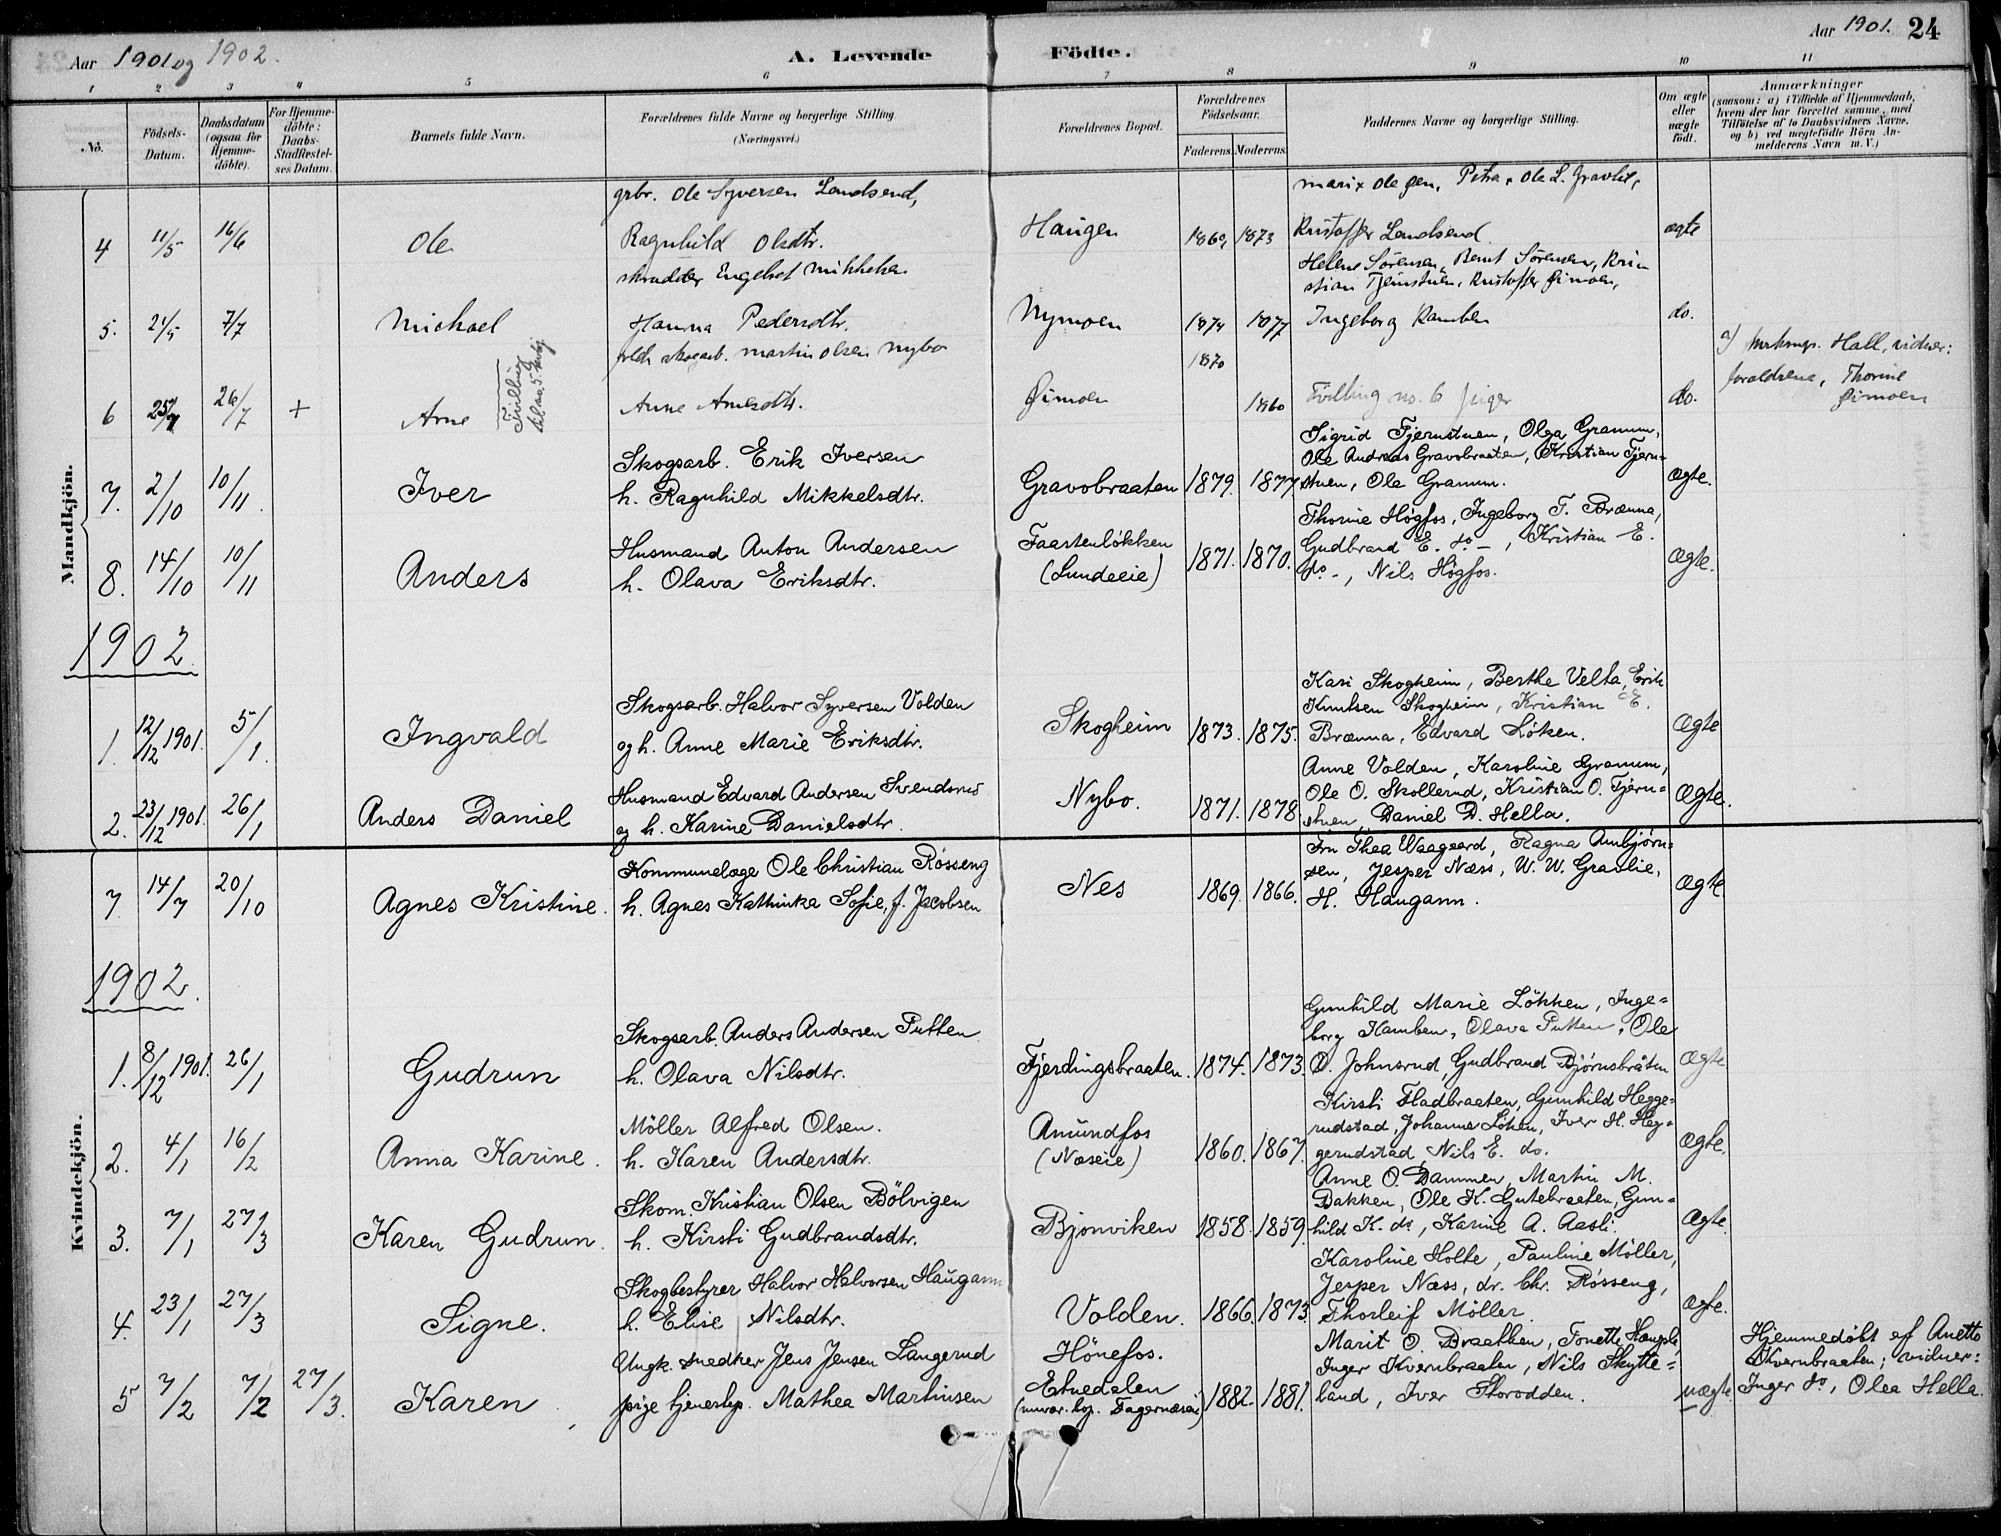 Aar 1901 og 1902.
A. Levende Födte.
Aar 1901. 24
1 2 3 4 5 6 7 8 9 10 11
No.
Födsels-Datum.
Daabsdatum (ogsaa for Hjemme-döbte).
For Hjemme-döbte: Daabs-Stadfæstel-ses Datum.
Barnets fulde Navn.
Forældrenes fulde Navne og borgerlige Stilling (Næringsvei.)
Forældrenes Bopæl.
Forældrenes Födselsaar. Faderens. Moderens.
Faddernes Navne og borgerlige Stilling.
Om ægte eller uægte födt.
Anmærkninger
(saasom: a) i Tilfælde af Hjemmedaab, hvem der har forrettet samme, med Tilföielse af to Daabsvidners Navne, og b) ved uægtefödte Börn An-melderens Navn m. V.)
Mandkjön.
grbr. Ole Syversen Landsend,
4 11/5 16/6 Ole Ragnhild Olsdtr. Haugen 1869 1873 Kristoffer Landsend ægte
skrædder Engebret Mikkelsen
Helene Sörensen, Bernt Sörensen, Kri-
stian Tjernstuen, Kristoffer Öimoen,
5. 21/5 7/7 Michael Hanna Pedersdtr. Nymoen 1874 1877 Ingeborg Ramben do.
skogarb. Martin Olsen Nybo 1870
6 25/7 26/7 + Arne Anne Arnesdtr. Öimoen 1860 Tvilling no. 6 piger do.
Hall, vidner: forældrene, Thorine Öimoen
Skogsarb. Erik Iversen
Sigrid Tjernstuen, Olga Granum,
Ole Andreas Gravobraaten, Kristian Tjern-
7. 2/10 10/11. Iver h. Ragnhild Mikkelsdtr. Gravobraaten 1879. 1877 stuen, Ole Granum. Ægte.
Husmand Anton Andersen Faastenlökken
Thorine Högfos, Ingeborg T. Brænna,
Gudbrand E. do -, Kristian E.
8. 14/10 10/11 Anders h. Olava Eriksdtr. (Lundeeie) 1871. 1870. do -, Nils Högfos. Ægte.
1902.
Skogsarb. Halvor Syversen Volden
Kari Skogheim, Berthe Velta, Erik
Knutsen Skogheim, Kristian E.
1. 12/12 1901. 5/1. Ingvald og h. Anne Marie Eriksdtr. Skogheim 1873. 1875. Brænna, Edvard Löken. Ægte
Husmand Edvard Andersen Svendsrud
Anne Volden, Karoline Granum,
Ole O. Skollerud, Kristian O. Tjern-
2. 23/12 1901. 26/1 Anders Daniel og h. Karine Danielsdtr. Nybo. 1871. 1878 stuen, Daniel D. Hella. Ægte.
Kvindekjön.
Kommunelæge Ole Christian Rösseng
Fru Thea Waagaard, Ragna Arnbjörn-
sen, Jesper Næss, W. W. Gravlie,
7 14/7 20/10 Agnes Kristine. h. Agnes Kathinka Sofie, f. Jacobsen Nes 1869. 1866. H. Haugann. Ægte
1902.
Skogsarb. Anders Andersen Putten
Gunhild Marie Lökken, Inge-
borg Hamben, Olava Putten, Ole
1. 8/12 1901. 26/1 Gudrun h. Olava Nilsdtr. Fjerdingsbraaten. 1874. 1873. O. Johnsrud, Gudbrand Björnsbråten Ægte
Möller Alfred Olsen.
Kirsti Fladbraaten, Gunhild Hegge-
rudstad, Johanne Löken, Iver H. Heg-
2. 4/1 16/2 Anna Karine. h. Karen Andersdtr. Amundfos (Næseie) 1860. 1867. gerudstad, Nils E. do. Ægte.
Skom. Kristian Olsen Bölvigen
Anne O. Dammen, Martin M.
Bakken, Ole K. Gutebraaten, Gun-
3. 7/1 27/3 Karen Gudrun. h. Kirsti Gudbrandsdtr. Bjonviken 1858. 1859. hild K. do, Karine A. Aasli. Ægte.
Skogbestyrer Halvor Halvorsen Haugann
Karoline Holte, Pauline Möller,
Jesper Næss, dr. Chr. Rösseng,
4. 23/1 27/3 Signe. h. Elise Nilsdtr. Volden. 1866. 1873. Thorleif Möller. Ægte.
Ungk. snedker Jens Jensen Langerud Hönefos.
Marit O. Braathen,
Inger Kvernbraaten, Nils Skytte-
5 7/2 7/2 27/3. Karen pige tjenestep. Mathea Martinsen Etnedalen 1882. 1881. land, Iver Storodden. uægte
Hjemmedöbt af Anette
Kvernbraaten; vidner:
Inger do, Olea Hella.